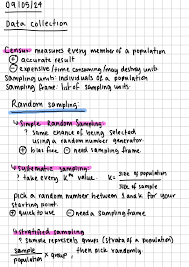 09/05/24
Data collection
Census: measures every member of a population
⊕ accurate result
⊖ expensive/time consuming/may destroy units
Sampling unit: individuals of a population
Sampling frame: list of sampling units
Random sampling:
↳ Simple Random Sampling
? same chance of being selected
using a random number generator
⊕ bias free ⊖ need sampling frame
↳ Systematic sampling
? take every kth value k = size of population
size of sample
pick a random number between 1 and k for your
starting point
⊕ quick to use ⊖ need a sampling frame
↳ Stratified sampling
? sample represents groups (strata of a population)
sample × group, then pick randomly
population